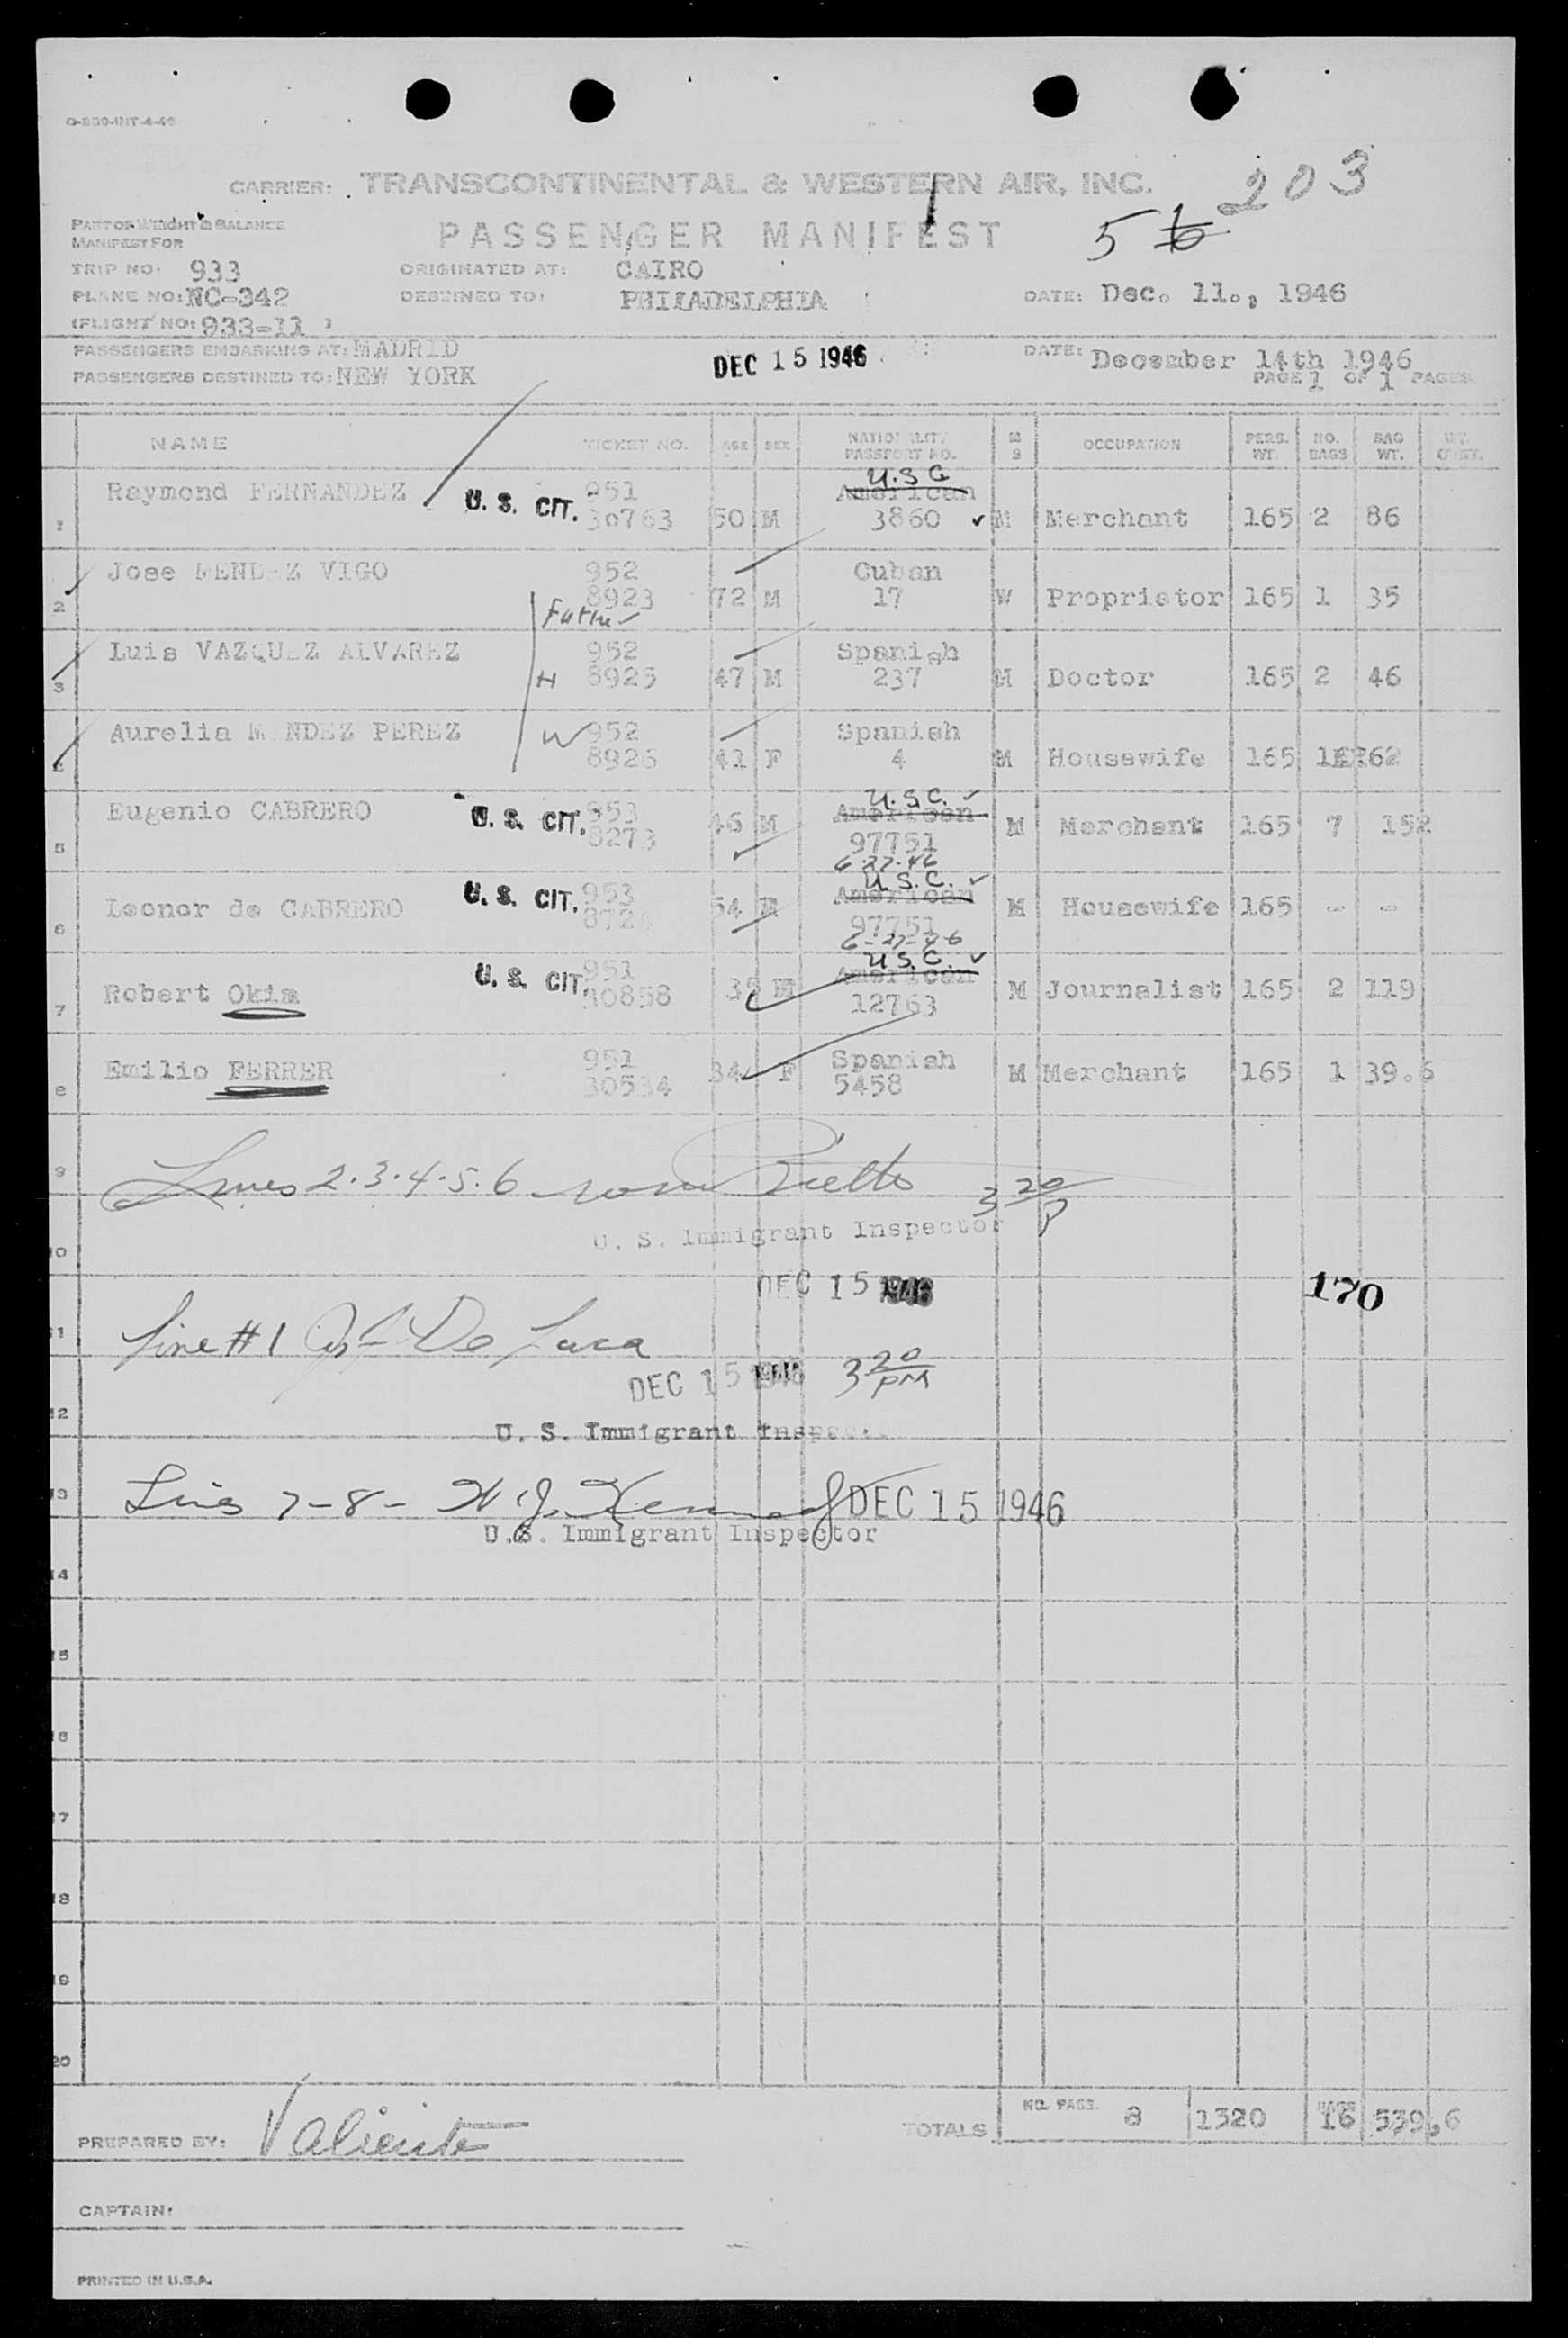 O-830-INT-4-46
CARRIER: TRANSCONTINENTAL & WESTERN AIR, INC. 203
PART OF WEIGHT & BALANCE
MANIFEST FOR
PASSENGER MANIFEST 5
TRIP NO: 933 ORIGINATED AT: CAIRO
PLANE NO: NC-342 DESTINED TO: PHILADELPHIA DATE: Dec. 11., 1946
(FLIGHT NO: 933-11 )
PASSENGERS EMBARKING AT: MADRID DEC 15 1946 DATE: December 14th 1946
PASSENGERS DESTINED TO: NEW YORK PAGE 1 OF 1 PAGES
NAME TICKET NO. AGE SEX NATIONALITY PASSPORT NO. M S OCCUPATION PERS. WT. NO. BAGS BAG WT.
U.S.C
Raymond FERNANDEZ U. S. CIT. 951 American
1 30763 50 M 3860 M Merchant 165 2 86
Jose MENDEZ VIGO 952 Cuban
2 8923 72 M 17 W Proprietor 165 1 35
Father
Luis VAZQUEZ ALVAREZ 952 Spanish
3 H 8925 47 M 237 M Doctor 165 2 46
Aurelia MENDEZ PEREZ W 952 Spanish
4 8926 41 F 4 M Housewife 165 1 62
U.S.C.
Eugenio CABRERO U. S. CIT. 953 46 M American M Merchant 165 7 152
5 8273 97751
6-27-46
U.S.C.
Leonor de CABRERO U. S. CIT. 953 54 American M Housewife 165 - -
6 97751
6-27-46
U.S.C.
Robert Okim U. S. CIT. 951 American
7 30858 35 M 12763 M Journalist 165 2 119
Emilio FERRER 951 34 F Spanish M Merchant 165 1 39.6
8 30534 5458
9 Lines 2.3.4.5.6 3 20 P
U. S. Immigrant Inspector
10
DEC 15 1946 170
11 Line #1 De Luca
DEC 15 1946 3 20 PM
12
U. S. Immigrant Inspector
13 Lines 7-8- W. J. Kennedy DEC 15 1946
U.S. Immigrant Inspector
14
15
16
17
18
19
20
TOTALS NO. PASS. 8 1320 BAGS 16 539.6
PREPARED BY: Valiente
CAPTAIN:
PRINTED IN U.S.A.